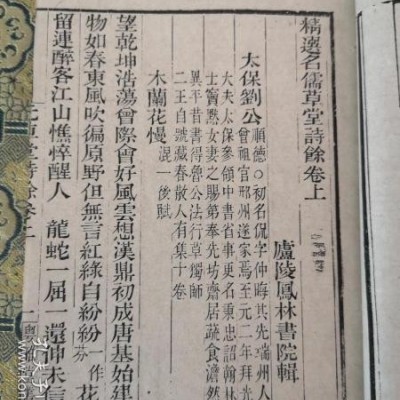 精選名儒草堂詩餘卷上
廬陵鳳林書院輯
太保劉公
順德○初名侃字仲晦其先瑞州人
曾祖官邢州遂家焉至元二年拜光
大夫太保參領中書省事更名秉忠詔翰林
士竇默女妻之賜第奉先坊齋居蔬食澹然
異平昔書得魯公法行草獨師
二王自號藏春散人有集十卷
木蘭花慢
混一後賦
望乾坤浩蕩曾際會好風雲想漢鼎初成唐基始建
物如春東風吹徧原野但無言紅綠自紛紛一作花
留連醉客江山憔悴醒人 龍蛇一屈一還伸未信